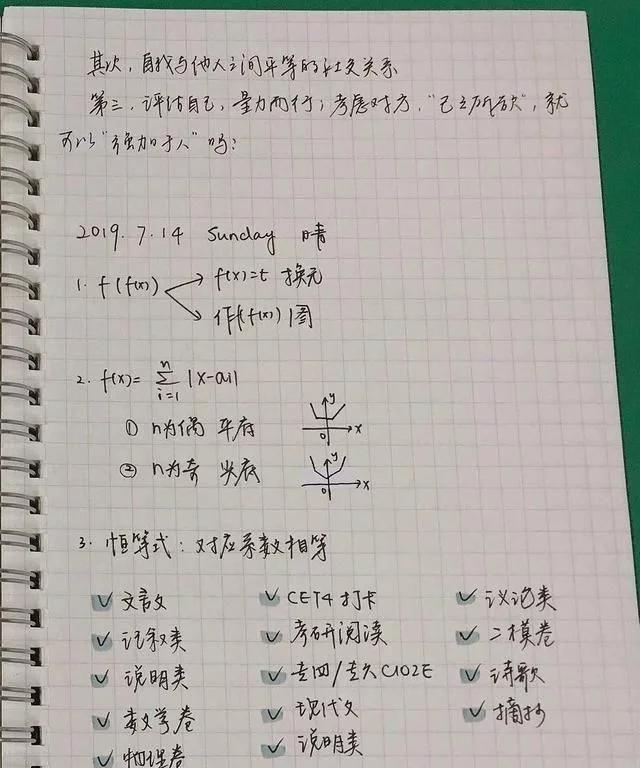 其次,自我与他人之间平等的社交关系
第三,评估自己,量力而行;考虑对方,“己之所欲”,就
可以“强加于人”吗?
2019.7.14 Sunday 晴
1. f(f(x)) f(x)=t 换元
作f(f(x))图
2. f(x)= n∑i=1 |x-ai|
① n为偶 平底 y 0 x
② n为奇 尖底 y 0 x
3. 恒等式:对应系数相等
文言文 CET4打卡 议论类
记叙类 考研阅读 二模卷
说明类 专四/专八 诗歌
数学卷 现代文 摘抄
物理卷 说明类